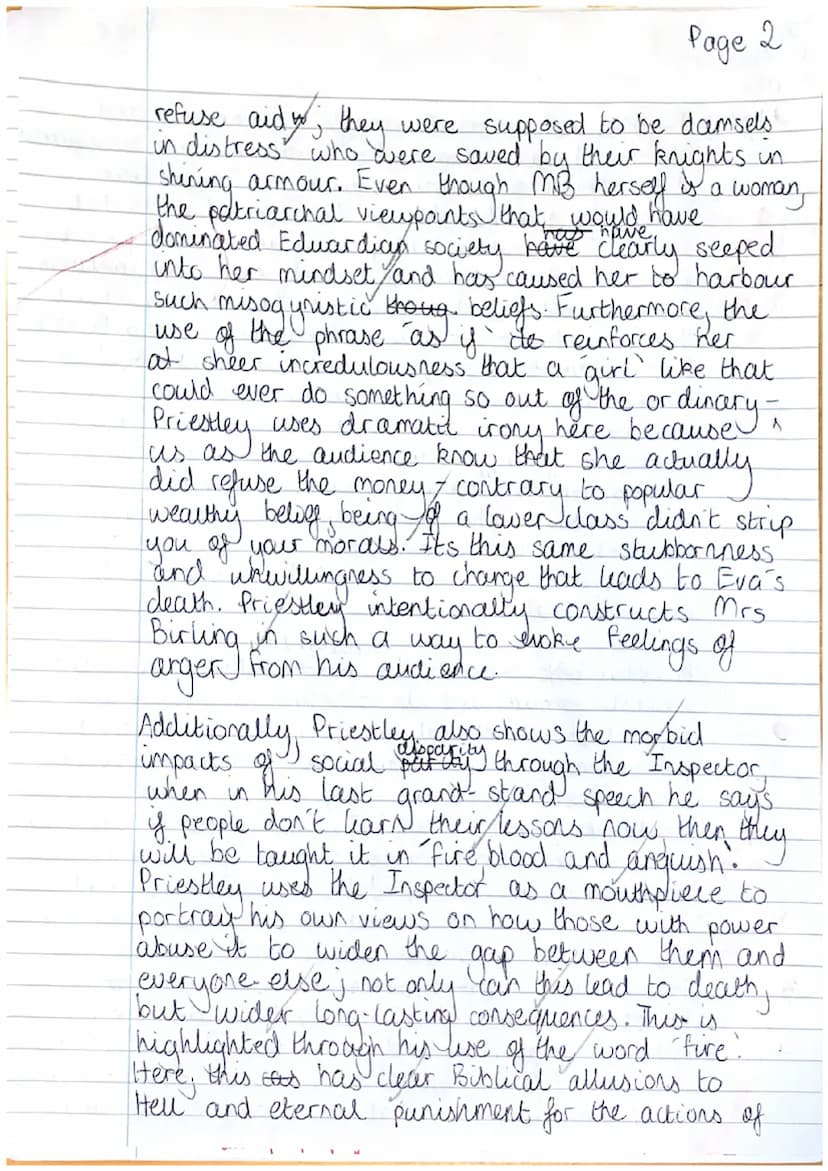 Page 2
refuse aid; they were supposed to be damsels
in distress who were saved by their knights in
shining armour. Even though MB herself is a woman,
the patriarchal viewpoints that would have
dominated Edwardian society have clearly seeped
into her mindset and has caused her to harbour
such misogynistic thoug beliefs. Furthermore, the
use of the phrase 'as if' de reinforces her
at sheer incredulousness that a 'girl' like that
could ever do something so out of the ordinary -
Priestley uses dramatic irony here because
us as the audience know that she actually
did refuse the money - contrary to popular
wealthy belief, being of a lower class didn't strip
you of your morals. Its this same stubborness
and unwillingness to change that leads to Eva's
death. Priestley intentionally constructs Mrs
Birling in such a way to evoke feelings of
anger from his audience.
Additionally, Priestley also shows the morbid
impacts of social disparity through the Inspector,
when in his last grand-stand speech he says
if people don't learn their lessons now, then they
will be taught it in 'fire blood and anguish'.
Priestley uses the Inspector as a mouthpiece to
portray his own views on how those with power
abuse it to widen the gap between them and
everyone else; not only can this lead to death,
but wider long-lasting consequences. This is
highlighted through his use of the word 'fire'.
Here, this has clear Biblical allusions to
Hell and eternal punishment for the actions of